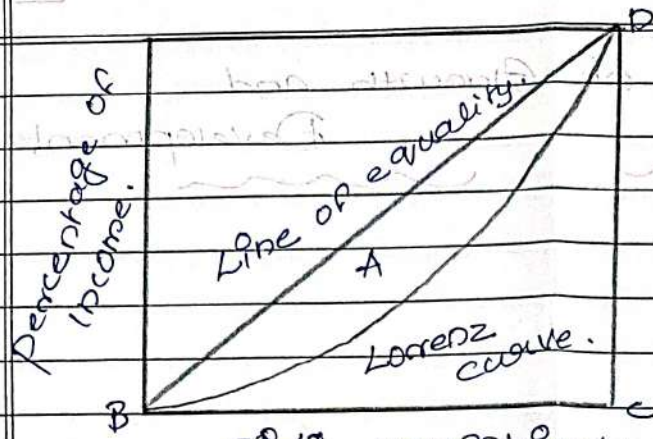 D
Percentage of
income.
Line of equality.
A
Lorenz
curve.
B
C